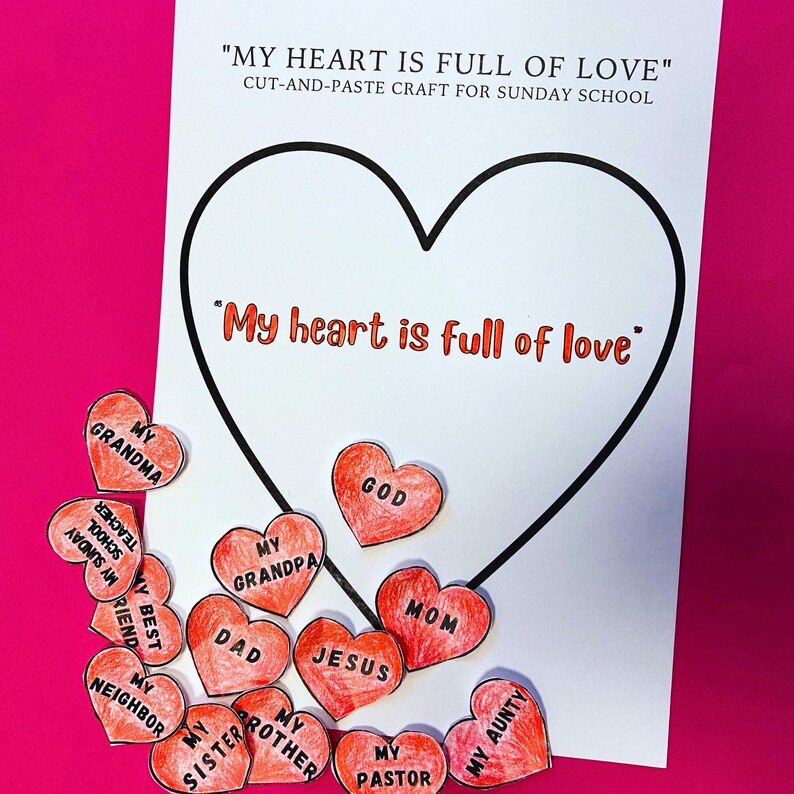 "MY HEART IS FULL OF LOVE"
CUT-AND-PASTE CRAFT FOR SUNDAY SCHOOL
"My heart is full of love"
MY
GRANDMA
GOD
MY SUNDAY
SCHOOL
TEACHER
MY
GRANDPA
MY BEST
FRIEND
MOM
DAD
JESUS
MY
NEIGHBOR
MY
SISTER
MY
BROTHER
MY
PASTOR
MY AUNTY